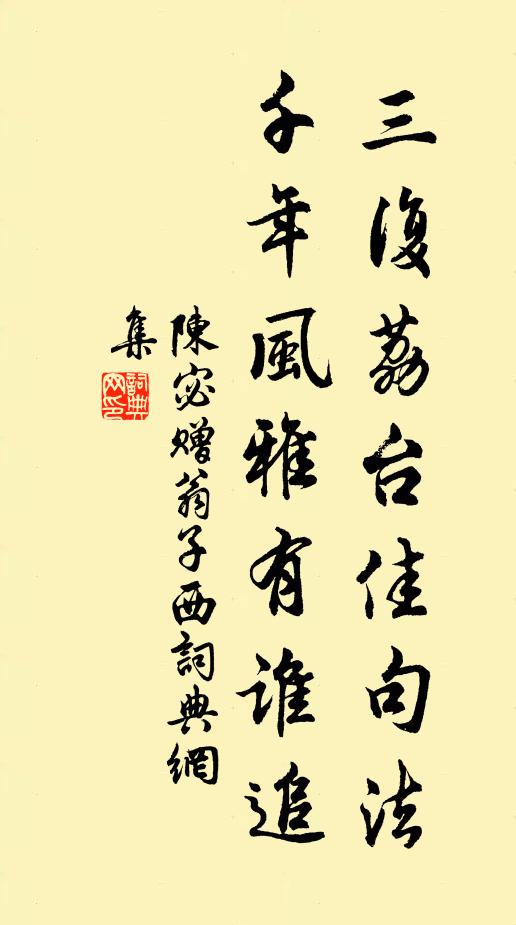 三復荔台佳句法
千年風雅有誰追
陳宓贈翁子西詞典網
集
詞典網印